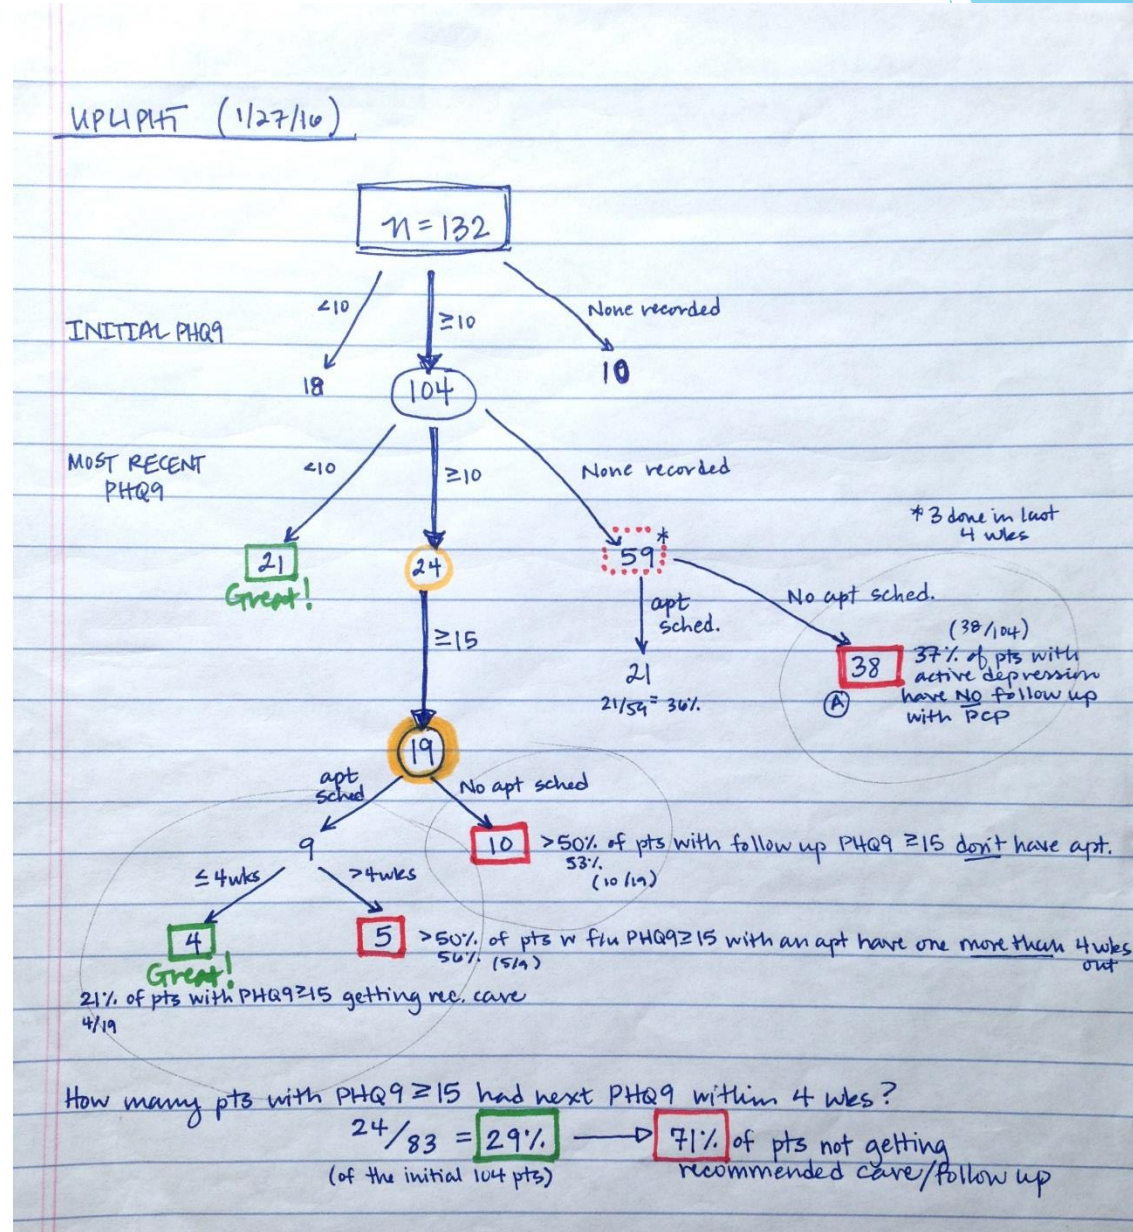 UPLIPHT (1/27/16)
n = 132
<10
≥10
None recorded
INITIAL PHQ9
18
104
10
MOST RECENT
PHQ9
<10
≥10
None recorded
* 3 done in last
4 wks
21
Great!
24
59*
No apt sched.
apt
sched.
≥15
(38/104)
38
37% of pts with
active depression
have NO follow up
with PCP
A
21
21/59 = 36%
19
apt
sched
No apt sched
9
10
>50% of pts with follow up PHQ9 ≥15 don't have apt.
53%
(10/19)
≤4wks
>4wks
4
Great!
5
>50% of pts w f/u PHQ9≥15 with an apt have one more than 4 wks
out
56% (5/9)
21% of pts with PHQ9≥15 getting rec. care
4/19
How many pts with PHQ9≥15 had next PHQ9 within 4 wks?
24/83 = 29% → 71% of pts not getting
(of the initial 104 pts)
recommended care/follow up